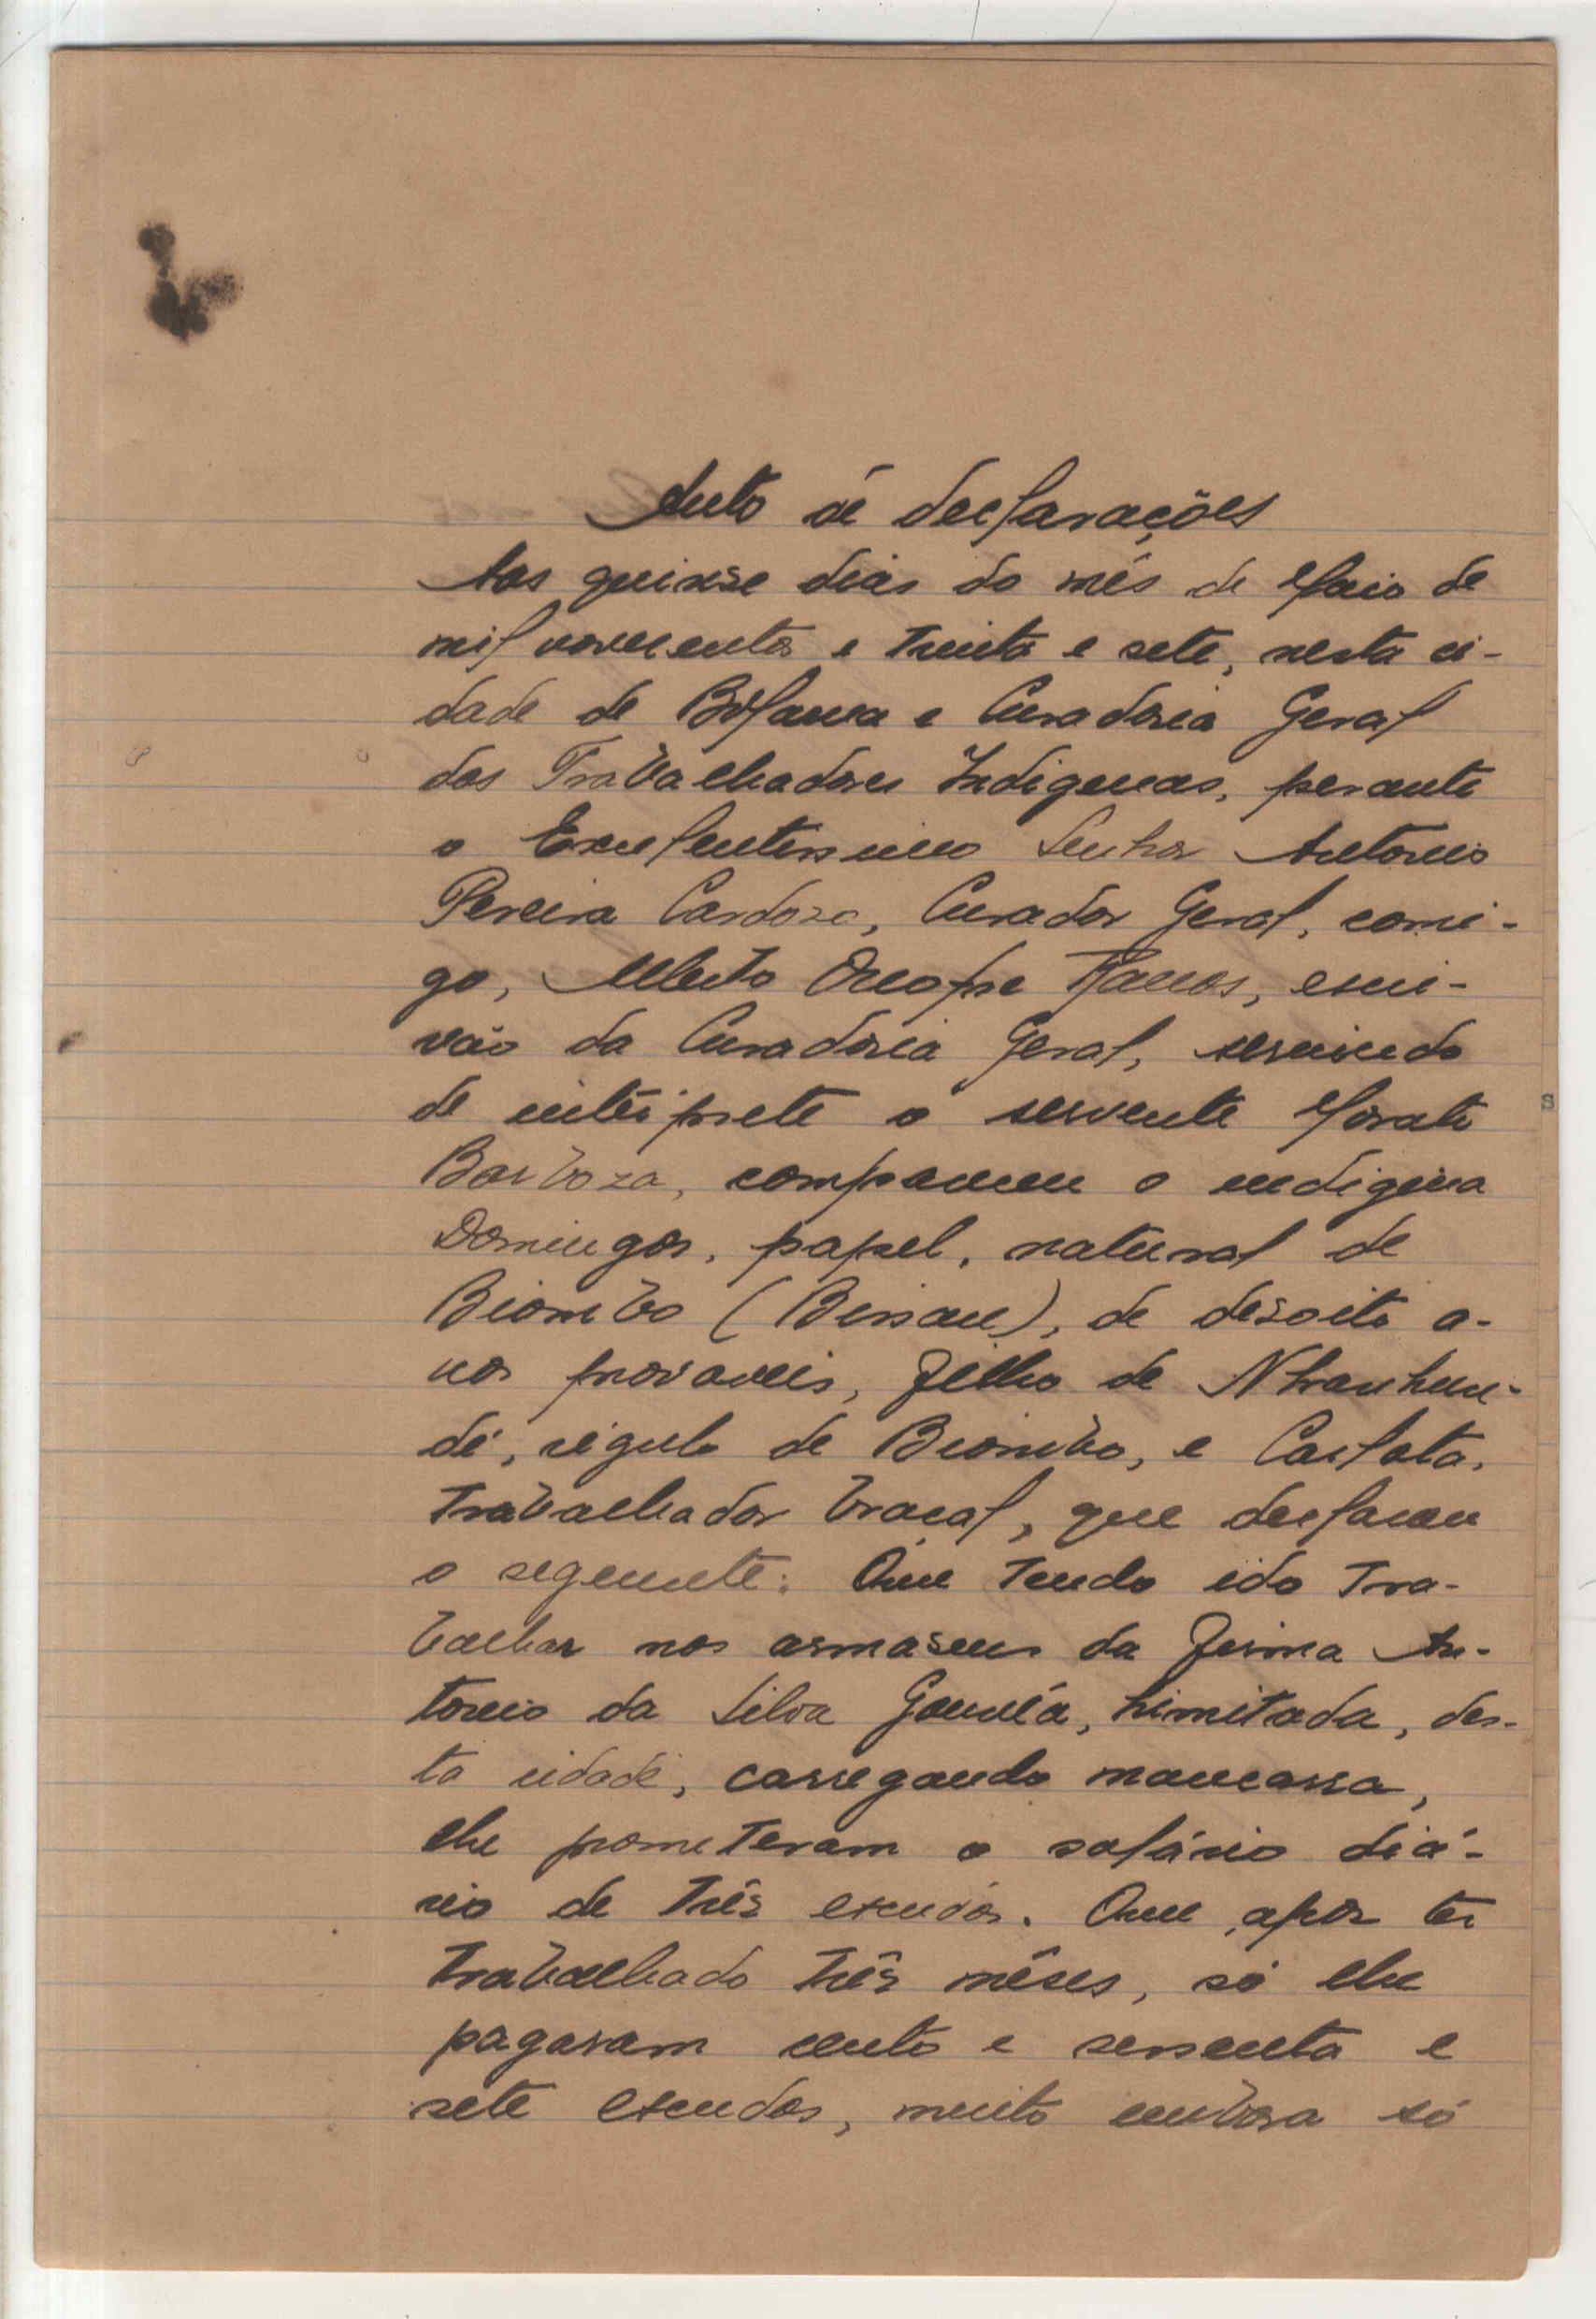 Auto de declarações
Aos quinze dias do mês de Maio de
mil novecentos e trinta e sete, nesta ci-
dade de Bolama e Curadoria Geral
dos Trabalhadores Indigenas, perante
o Excelentissimo Senhor Antonio
Pereira Cardoso, Curador Geral, comi-
go, Alberto Onofre Ramos, escri-
vão da Curadoria Geral, servindo
de intérprete o servente Morato
Barboza, compareceu o indigena
Domingos, papel, natural de
Biombo (Bissau), de desoito a-
nos provaveis, filho de Nhranhun-
dé, régulo de Biombo, e Carlota,
trabalhador braçal, que declarou
o seguinte: Que tendo ido tra-
balhar nos armaseus da firma An-
tonio da Silva Gouveia, Limitada, des-
ta cidade, carregando mancarra,
lhe prometeram o salário diá-
rio de três escudos. Que, após ter
trabalhado três mêses, só lhe
pagaram cento e sessenta e
sete escudos, muito embora só